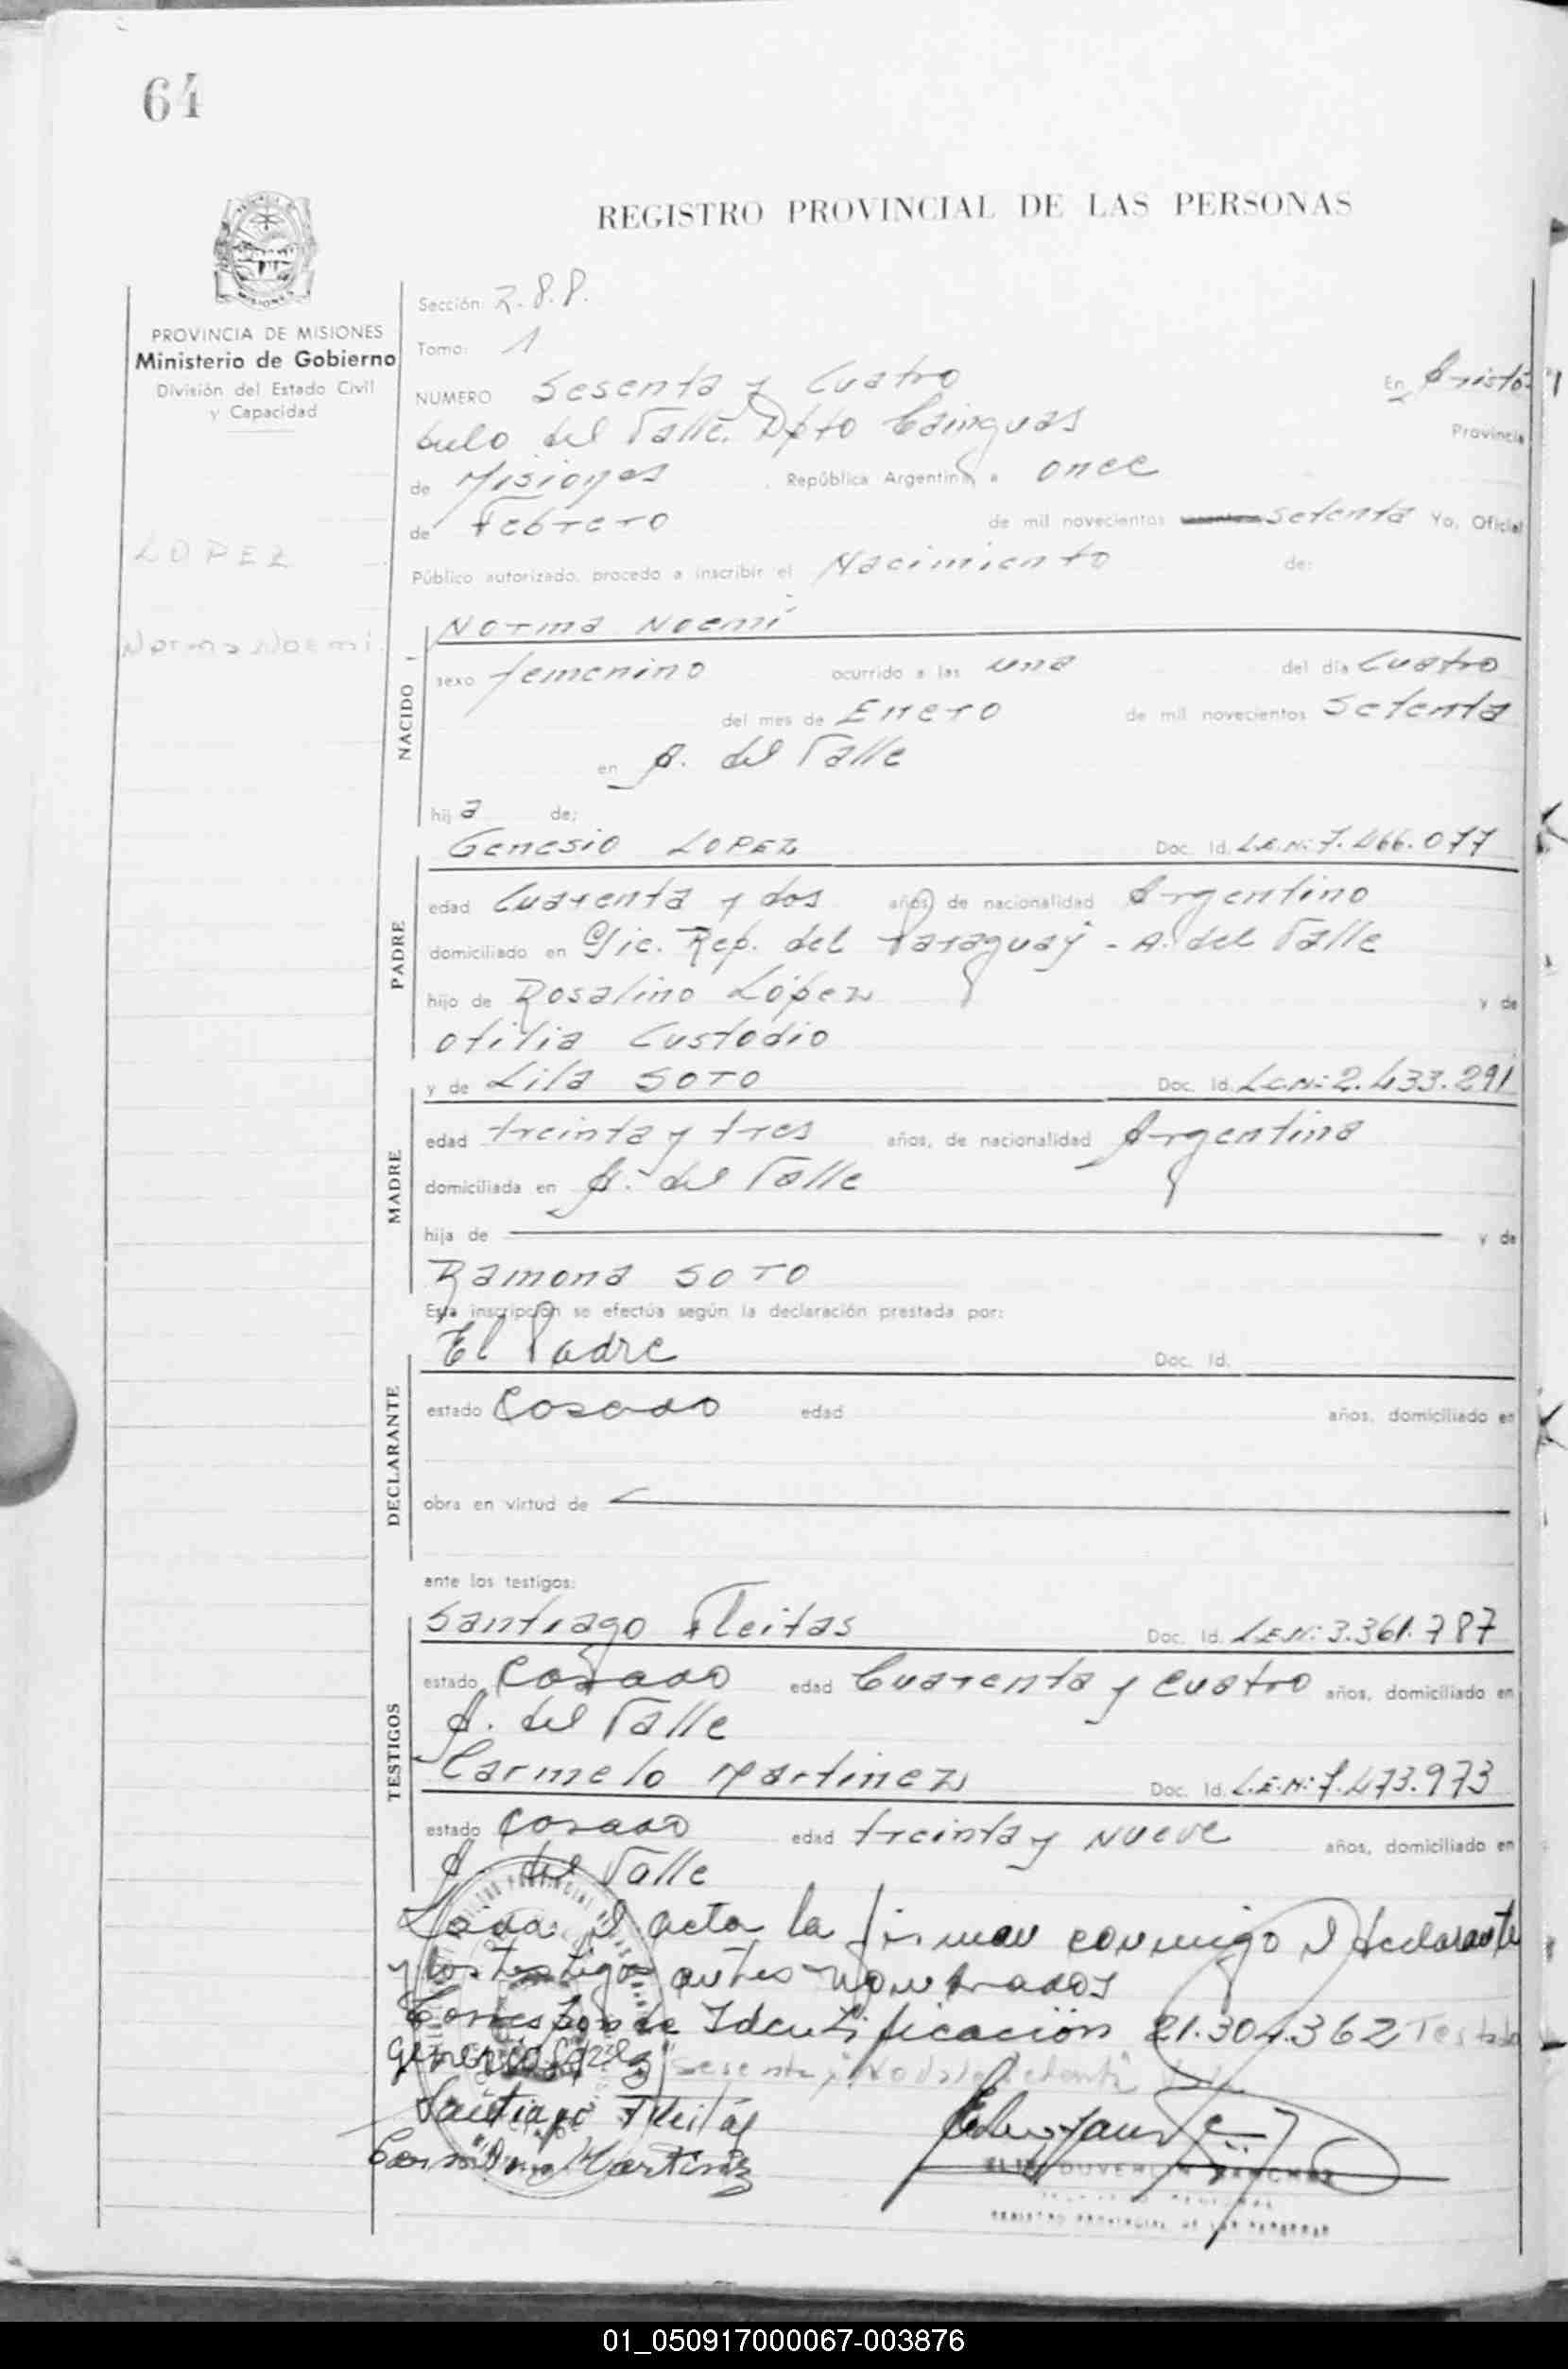 64
REGISTRO PROVINCIAL DE LAS PERSONAS
MISIONES
PROVINCIA DE MISIONES
Ministerio de Gobierno
División del Estado Civil
y Capacidad
LOPEZ
Norma Noemi
Sección: 2.8.8.
Tomo: 1
NUMERO Sesenta y Cuatro En Aristó-
bulo del Valle. Dpto Cainguas Provincia
de Misiones , República Argentina, a once
de Febrero de mil novecientos setenta Yo, Oficial
Público autorizado, procedo a inscribir el Nacimiento de:
NACIDO
Norma Noemí
sexo femenino ocurrido a las una del día Cuatro
del mes de Enero de mil novecientos Setenta
en A. del Valle
hij a de;
PADRE
Genesio LOPEZ Doc. Id. L.E.N: 7.466.077
edad Cuarenta y dos años, de nacionalidad Argentino
domiciliado en Pic. Rep. del Paraguay - A. del Valle
hijo de Rosalino López y de
Otilia Custodio
MADRE
y de Lila SOTO Doc. Id. L.C.N: 2.433.291
edad treinta y tres años, de nacionalidad Argentina
domiciliada en A. del Valle
hija de y de
Ramona SOTO
Esta inscripción se efectúa según la declaración prestada por:
DECLARANTE
El Padre Doc. Id.
estado Casado edad años, domiciliado en
obra en virtud de
ante los testigos:
TESTIGOS
Santiago Fleitas Doc. Id. L.E.N: 3.361.787
estado Casado edad Cuarenta y cuatro años, domiciliado en
A. del Valle
Carmelo Martinez Doc. Id. L.E.N: 7.473.973
estado Casado edad treinta y nueve años, domiciliado en
A. del Valle
el acta la firman conmigo el declarante
y los testigos antes nombrados
Corresponde Identificación 21.304.362 Testado
"sesenta"
Santiago Fleitas
Martinez
REGISTRO PROVINCIAL DE LAS PERSONAS
01_050917000067-003876